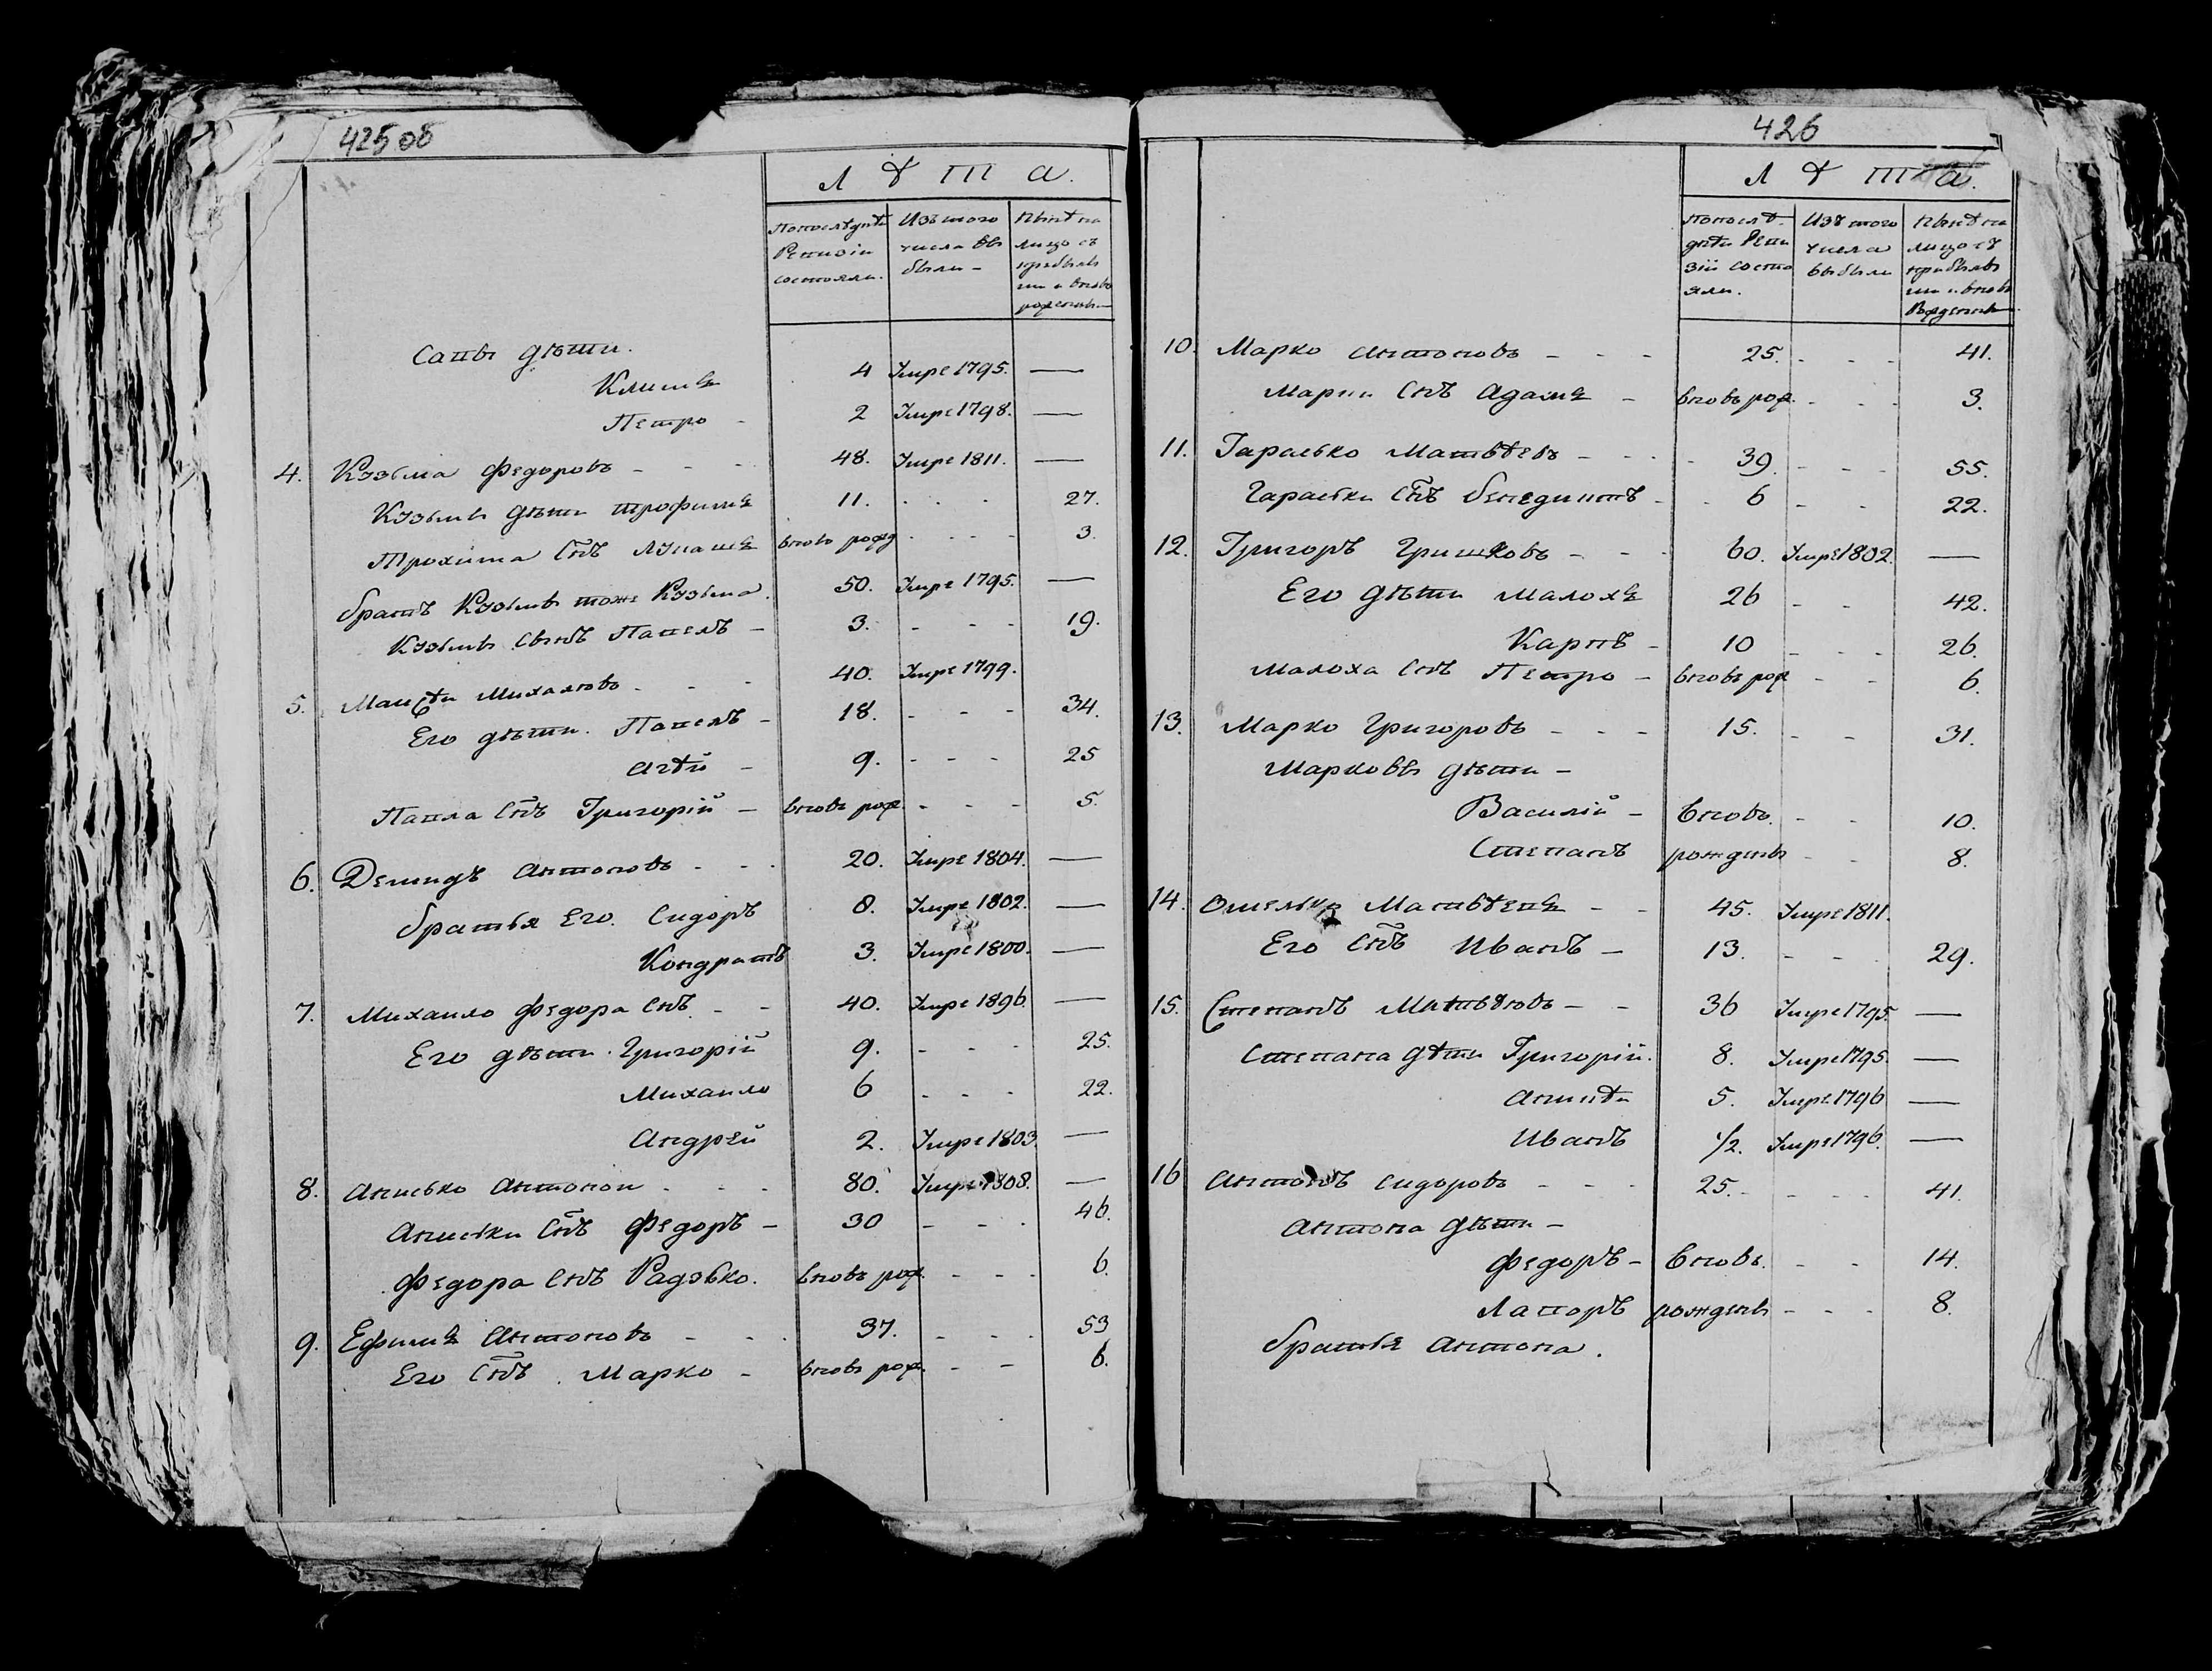 425 об
Лѣта.
По последней Ревизiи состояли. Изъ того числа выбыли Нынѣ на лицо съ прибылыми и вновь рожденны
Савы дѣти.
Климъ 4 Умре 1795. —
Петро - 2 Умре 1798. —
4. Кузьма Федоровъ - - - 48. Умре 1811. —
Кузьмы дѣти Трофимъ 11. - - - 27.
Трохима снъ Лукашъ вновь рожд - - - 3.
братъ Кузьмы тоже Кузьма. 50. Умре 1795. —
Кузьмы сынъ Павелъ - 3. - - - 19.
5. Михалювъ - - - 40. Умре 1799.
Его дѣти. Павелъ - 18. - - - 34.
Агѣй - 9. - - - 25
Павла снъ Григорiй - вновь рож - - - 5.
6. Демидъ Антоновъ - - - 20. Умре 1804. —
братья Его. Сидоръ 8. Умре 1802. —
Кондратъ 3. Умре 1800. —
7. Михайло Федора снъ - - 40. Умре 1896. —
Его дѣти. Григорiй 9. - - - 25.
Михайло 6 - - - 22.
Андрей 2. Умре 1803. —
8. Анисько Антонов - - - 80. Умре 1808. —
Аниськи снъ Федоръ - 30 - - - 46.
Федора снъ Радзько. вновь рож. - - - 6.
9. Ефимъ Антоновъ - - - 37. - - - 53
Его снъ. Марко - вновь рож. - - 6.
426
Лѣта.
По последней Ревизiй состояли. Изъ того числа выбыли Нынѣ на лицо съ прибылыми и вновь Рожденны
10. Марко Антоновъ - - - 25. - - - 41.
Марки снъ Адамъ - вновь рож. - - - 3.
11. Гарасько Матвѣевъ - - - 39. - - - 55.
Гараськи снъ бенедиктъ - 6 - - 22.
12. Григоръ Гришковъ - - - 60. Умре 1802. —
Его дѣти Малохъ 26 - - 42.
Карпъ - 10 - - - 26.
Малоха снъ Петро - вновь рож - - 6.
13. Марко Григоровъ - - - 15. - - 31.
Марковы дѣти -
Василiй - вновь. - - 10.
Степанъ рождены - - 8.
14. Омелько Матвѣевъ - - 45. Умре 1811.
Его снъ Иванъ - 13. - - - 29.
15. Степанъ Матвѣювъ - - 36 Умре 1795. —
Степана дѣти Григорiй. 8. Умре 1795. —
5. Умре 1796 —
Иванъ 1/2. Умре 1796. —
16 Антонъ Сидоровъ - - - 25. - - - 41.
Антона дѣти -
Федоръ - вновь. - - 14.
Лаворъ рождены - - - 8.
братья Антона.